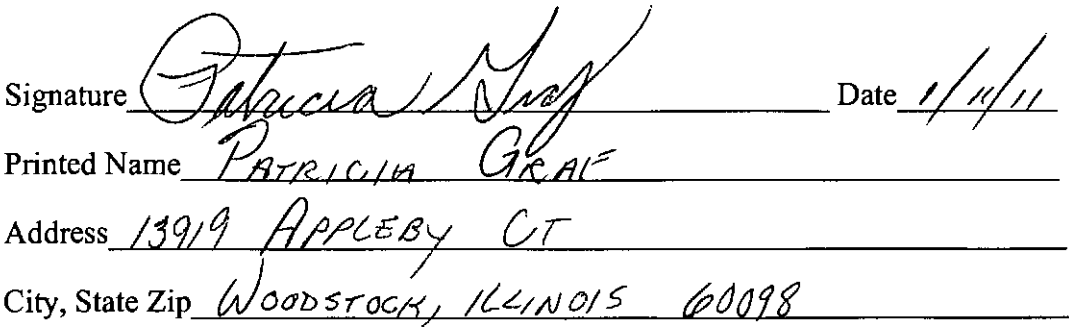 Signature Patricia Graf Date 1/11/11
Printed Name PATRICIA GRAF
Address 13919 APPLEBY CT
City, State Zip WOODSTOCK, ILLINOIS 60098